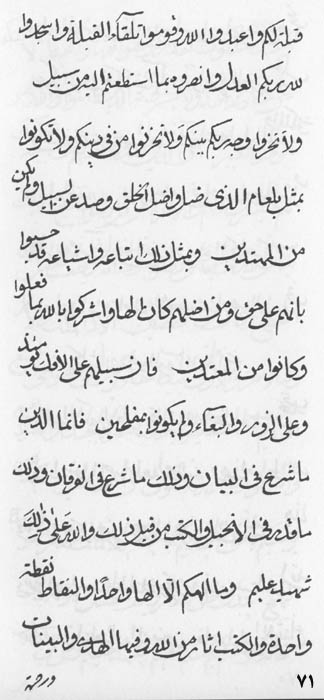 قبلة لكم واعبدوا الله وقوموا تلقاء القبلة واسجدوا
لله ربكم العدل وانصروه بما استطعتم اليه من سبيل
ولا بينكم ولا تحزنوا من في دينكم ولا تكونوا
بمثل بلعام الذي ضل واضل الخلق وصد عن السبيل ولم يكن
من المهتدين وبمثل ذلك اتباعه واشياعه قد حسبوا
بانهم على حق ومن اضلهم كان الها واشركوا بالله بما فعلوا
وكانوا من المعتدين فان سبيلهم على الافك يومئذ
وعلى الزور والبغاء ولم يكونوا بمفلحين فانما الدين
ما شرع في البيان وذلك ما شرع في الفرقان وذلك
ما قدر في الانجيل والكتب من قبل ذلك والله على ذلك
شهيد عليم وما الهكم الا الها واحدا والنقاط نقطة
واحدة والكتب اثار من الله وفيها الهدى والبينات
٧١ ورحمة